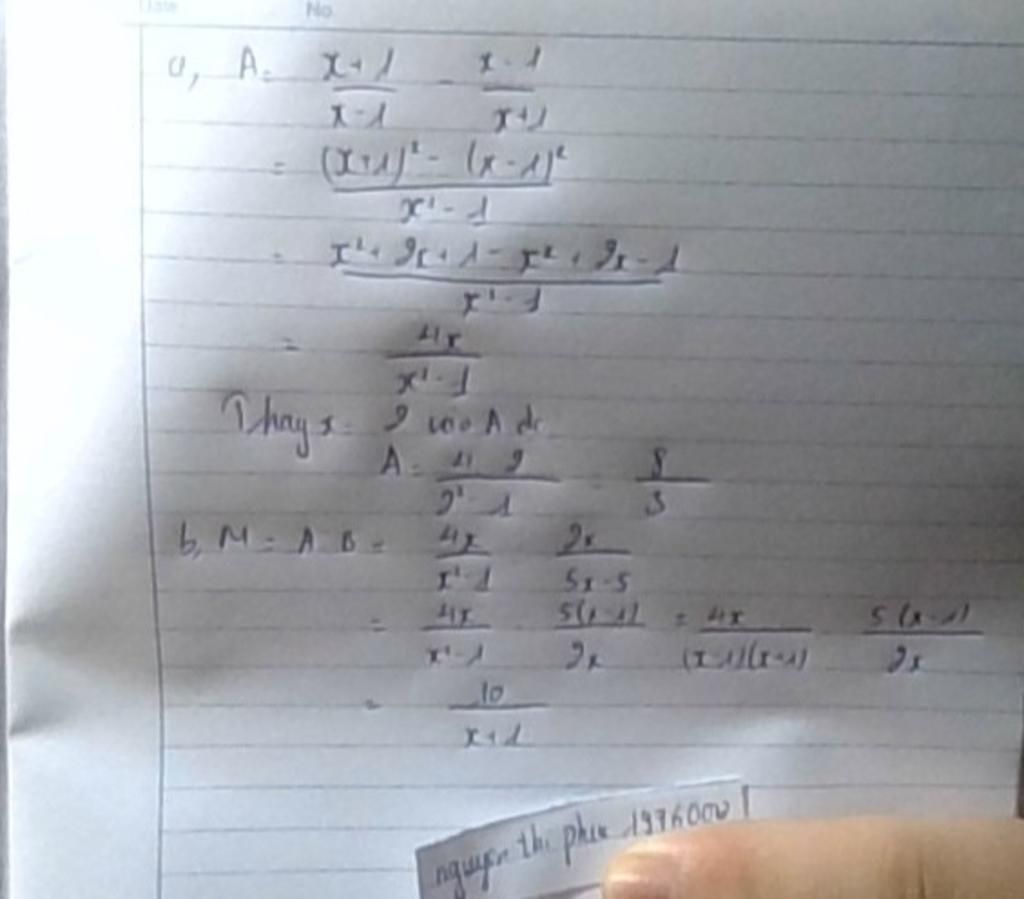 Date No
a, A = x+1/x-1 - x-1/x+1
= (x+1)² - (x-1)²/x²-1
= x²+2x+1-x²+2x-1/x²-1
= 4x/x²-1
Thay x = 2 vào A đc
A = 4.2/2²-1 = 8/3
b, M = A : B = 4x/x²-1 : 2x/5x-5
= 4x/x²-1 . 5(x-1)/2x = 4x/(x-1)(x+1) . 5(x-1)/2x
= 10/x+1
nguyen thi 1976000